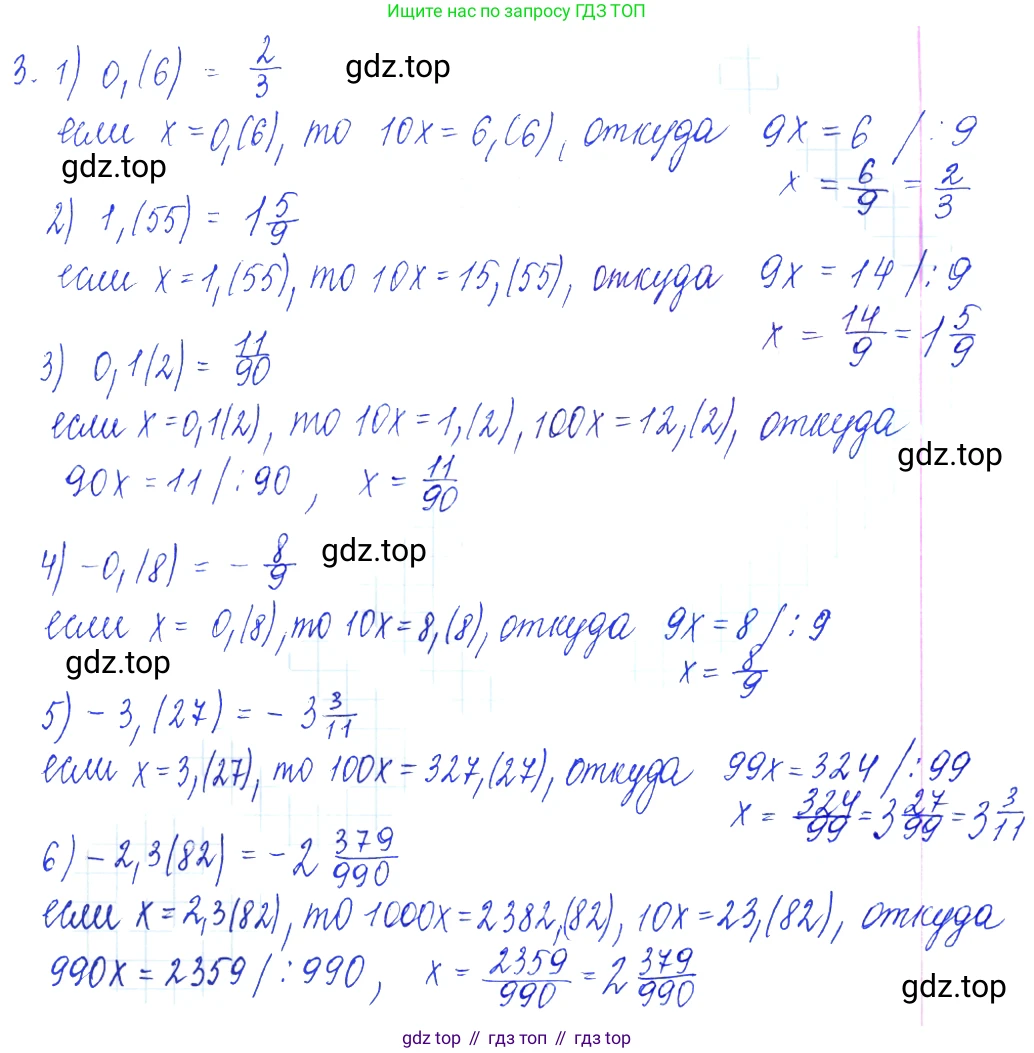 Ищите нас по запросу ГДЗ ТОП
3. 1) 0,(6) = 2/3
gdz.top
если x = 0,(6), то 10x = 6,(6), откуда 9x = 6 /:9
gdz.top
x = 6/9 = 2/3
2) 1,(55) = 1 5/9
если x = 1,(55), то 10x = 15,(55), откуда 9x = 14 /:9
x = 14/9 = 1 5/9
3) 0,1(2) = 11/90
если x = 0,1(2), то 10x = 1,(2), 100x = 12,(2), откуда
gdz.top
90x = 11 /:90, x = 11/90
4) -0,(8) = - 8/9
gdz.top
если x = 0,(8), то 10x = 8,(8), откуда 9x = 8 /:9
gdz.top
x = 8/9
5) -3,(27) = - 3 3/11
если x = 3,(27), то 100x = 327,(27), откуда 99x = 324 /:99
x = 324/99 = 3 27/99 = 3 3/11
6) -2,3(82) = -2 379/990
если x = 2,3(82), то 1000x = 2382,(82), 10x = 23,(82), откуда
990x = 2359 /:990, x = 2359/990 = 2 379/990
gdz.top
gdz top // гдз топ // gdz.top